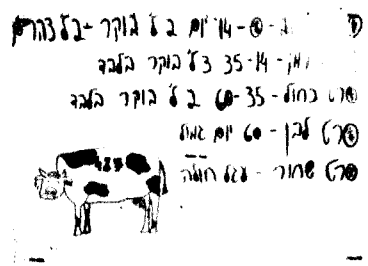 0-14 יום 2 ל' בוקר + 2 ל' צהריים
14-35 3 ל' בוקר בלבד
סרט כחול - 35-60 2 ל' בוקר בלבד
סרט לבן - 60 יום גמול
סרט שחור - עגל חולה